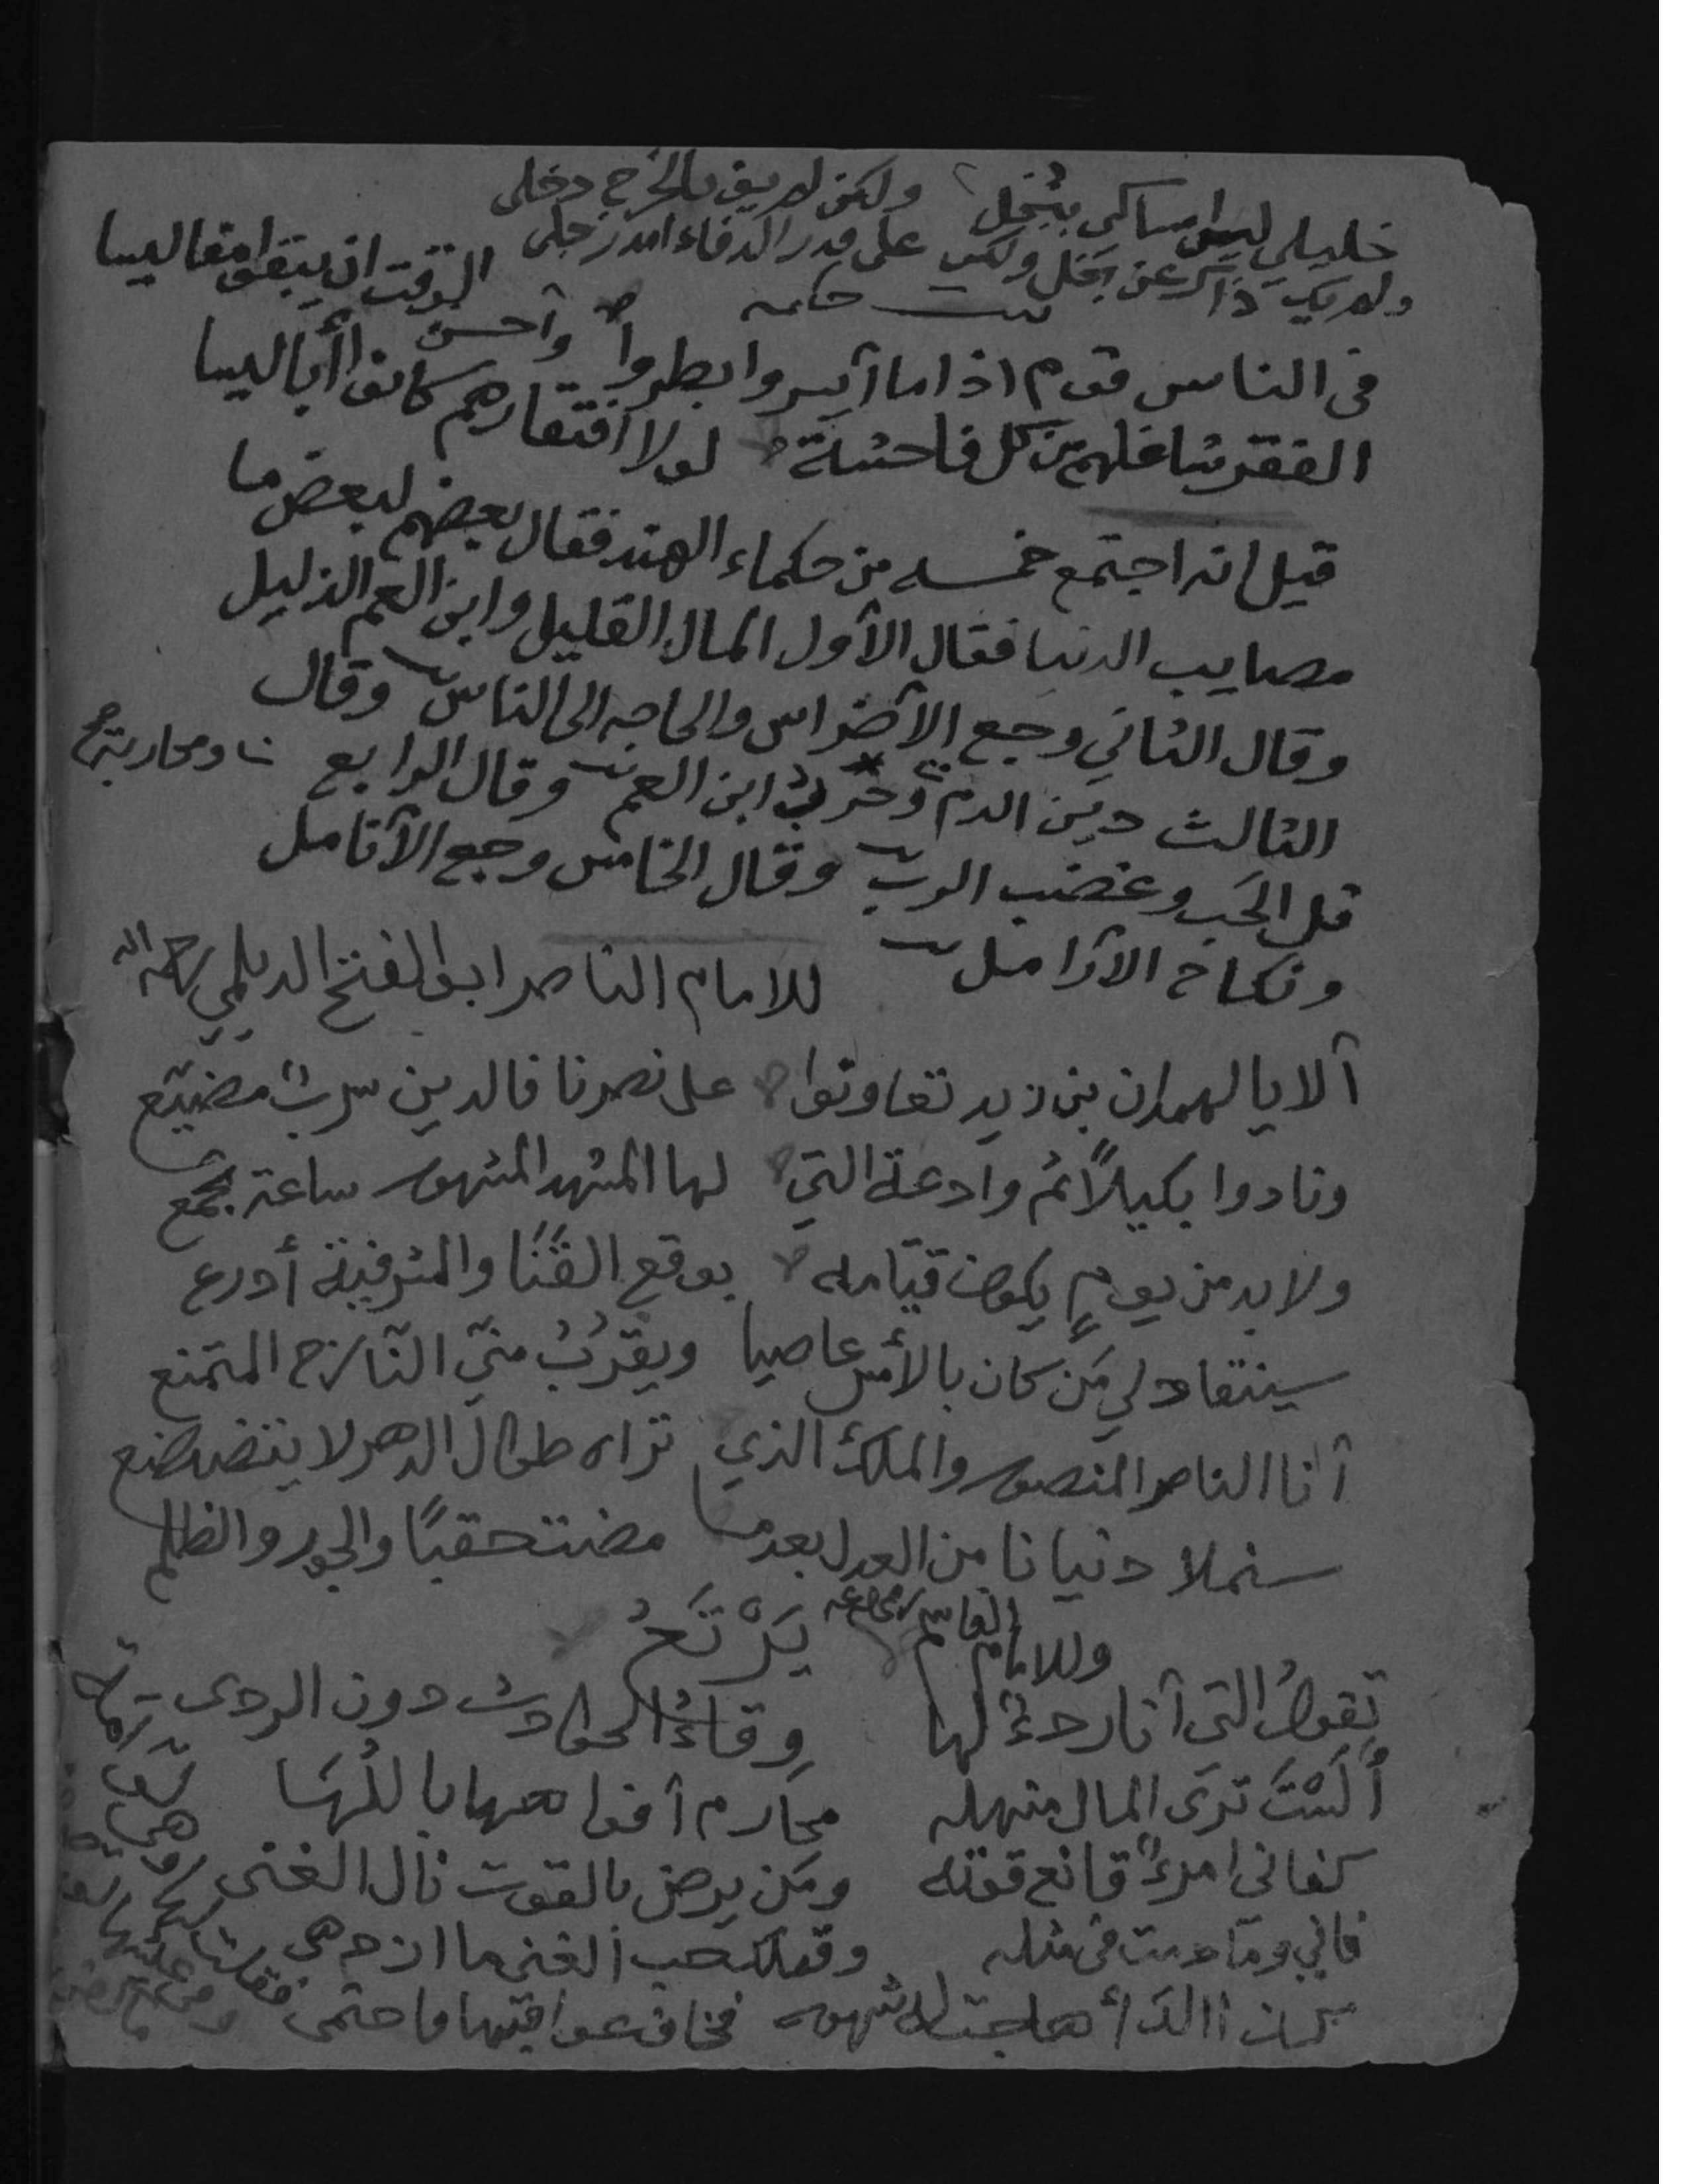 خليلي ليس امساكي بنجل ولكن لا يفي بالخرج دخلي
ولم يك ذاك عن بخل ولكن على قدر الدفاء امد رجلي
بيت حكمه
في الناس قوم اذا ما آيسروا بطروا وآحسن الوقت ان يبقوا مفاليسا
الفقر شاغلهم عن كل فاحشة لولا افتقارهم كانوا أباليسا
قيل انه اجتمع خمسه من حكماء الهند فقال بعضهم لبعض ما
مصايب الدنيا فقال الآول المال القليل وابن العم الذليل
وقال الثاني وجع الآضراس والحاجه الى الناس وقال
الثالث دين الدم وحرب ابن العم وقال الرابع
ومحاربة
قل الحَب وغضب الرب وقال الخامس وجع الآنامل
ونكاح الآرامل
للامام الناصر ابو الفتح الديلمي رحمه الله
آلا يا لهمدان بن زيد تعاونوا على نصرنا فالدين سرب مضيع
ونادوا بكيلاً ثم وادعة التي لها المشهد المشهور ساعة تجمع
ولا بد من يومٍ يكون قيامه بوقع القَنَا والمشرفية أدرع
سينقاد لي مَن كان بالأمس عاصيا ويقرُبُ منيّ النّازح المتمنع
آنا الناصر المنصور والملك الذي تراه طوال الدهر لا يتضعضع
سنملا دنيانا من العدل بعدما مضت حقبًا والجور والظلم
يَرْتَعُ
وللامام القاسم
تقولُ التي آنا ردءٌ لها وِقاءُ الحوادث دون الردى
أَلَسْتَ ترَى المال منهله مخارم آفواهها باللُهَا
كفاني امرءً قانع قوته ومَن يرض بالقوت نال الغنى
فاني وما رمت في مثله وقبلك حب الغنى ما ازدهى
هاجت له شهوه فخاف عواقبها فاحتمى